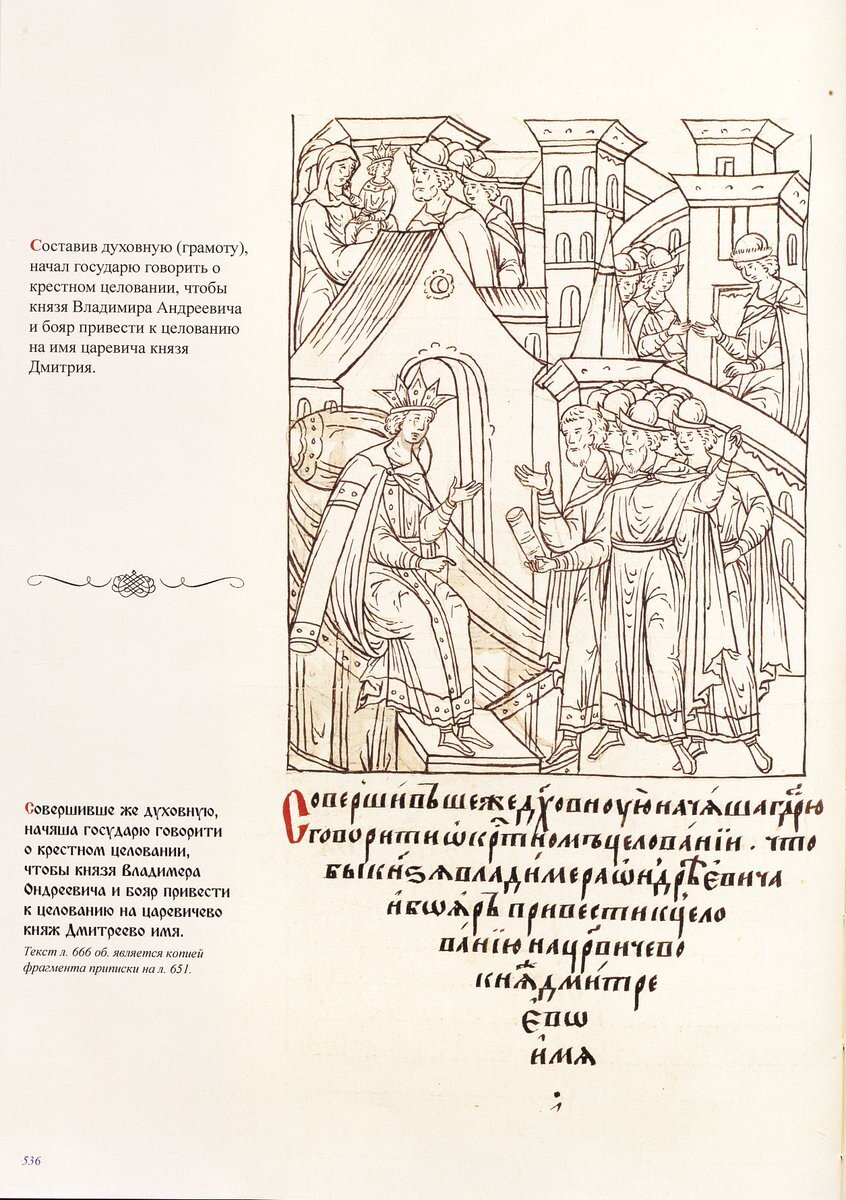 Составив духовную (грамоту),
начал государю говорить о
крестном целовании, чтобы
князя Владимира Андреевича
и бояр привести к целованию
на имя царевича князя
Дмитрия.
Совершивше же духовную,
начяша государю говорити
о крестном целовании,
чтобы князя Владимера
Ондреевича и бояр привести
к целованию на царевичево
княж Дмитреево имя.
Текст л. 666 об. является копией
фрагмента приписки на л. 651.
Совершившежедꙋховнꙋюначѧшагдрю
говоритиѡкртномъцеловании. что
быкнѕѧвладимераѡндреевича
ибоѧръпривестикцело
ваниюнацрвичево
кнѧждмитре
евѡ
имѧ
536